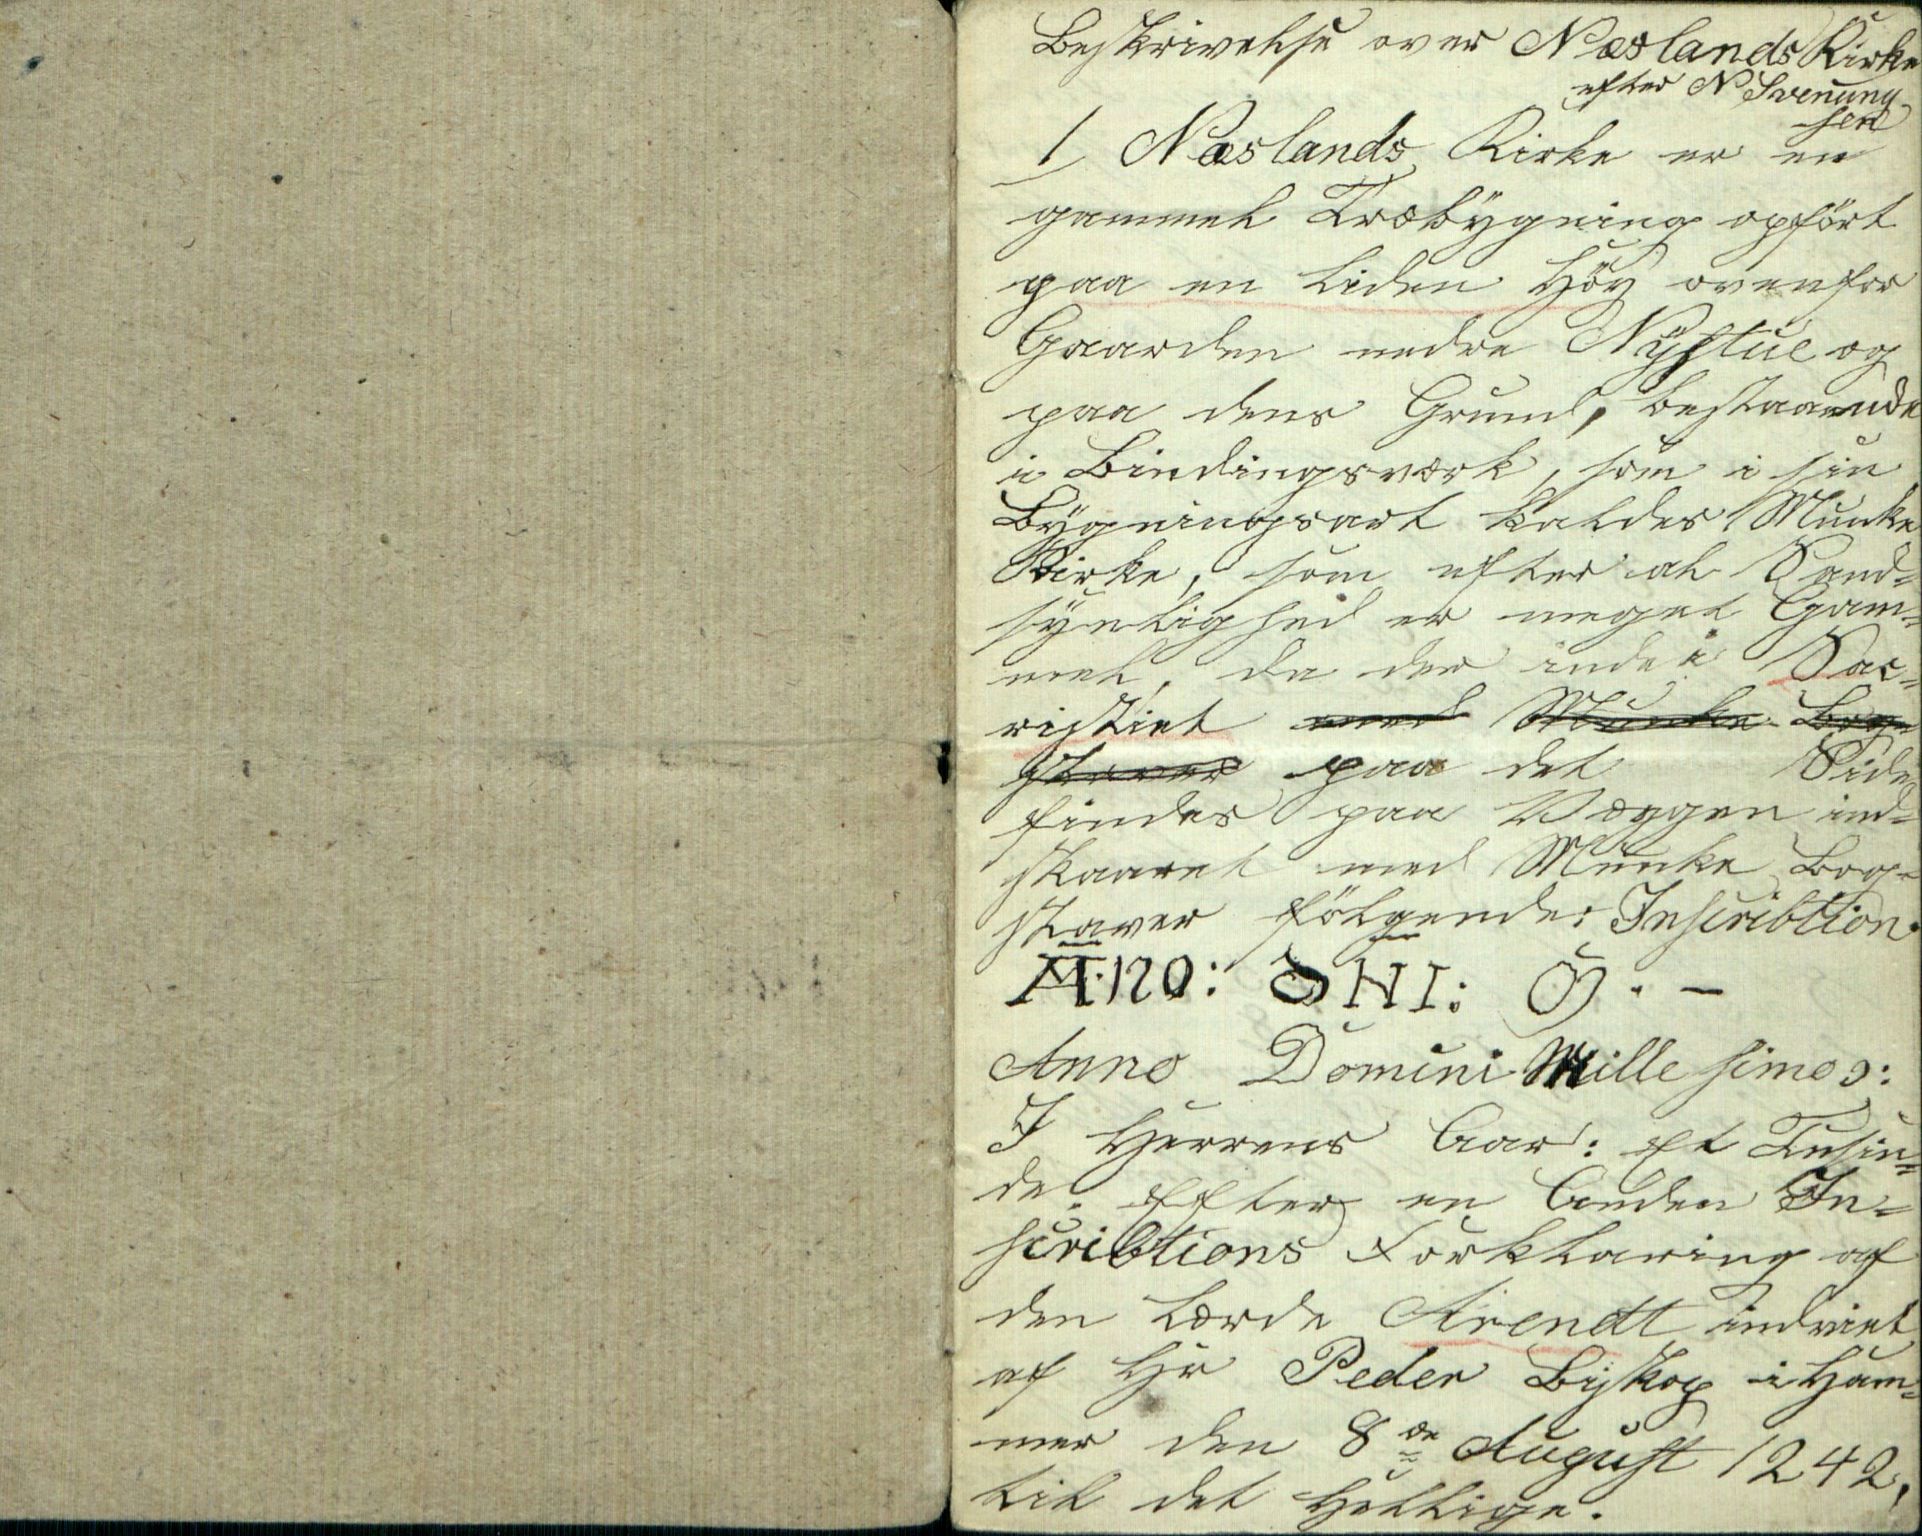 Beskrivelse over Næslands Kirke
efter N Svenung
sen
1 Næslands Kirke er en
gammel Træbÿgning opfört
paa en liden Höy ovenfor
Gaarden nedre Nÿstue og
paa dens Grund, bestaaende
i Bindingsværk, som i sin
Bÿgningsart kaldes Munke
Kirke, som efter al Sand-
sÿnlighed er meget Gam-
mel, da der inde i Sac-
ristiet med Munke Bog-
staver paa det Side
findes paa Væggen ind-
skaaret med Munke Bog-
staver fölgende: Inscribtion.
A̅no: DN̅I: Ⓜ · –
Anno Domini Millesimo ɔ:
I Herrens Aar: Et Tusin-
de. Efter en Anden In-
scribtions Forklaring af
den Lærde Arendt indviet
af Hr Peder Biskop i Ham-
mer den 8de August 1242,
til det Hellige.